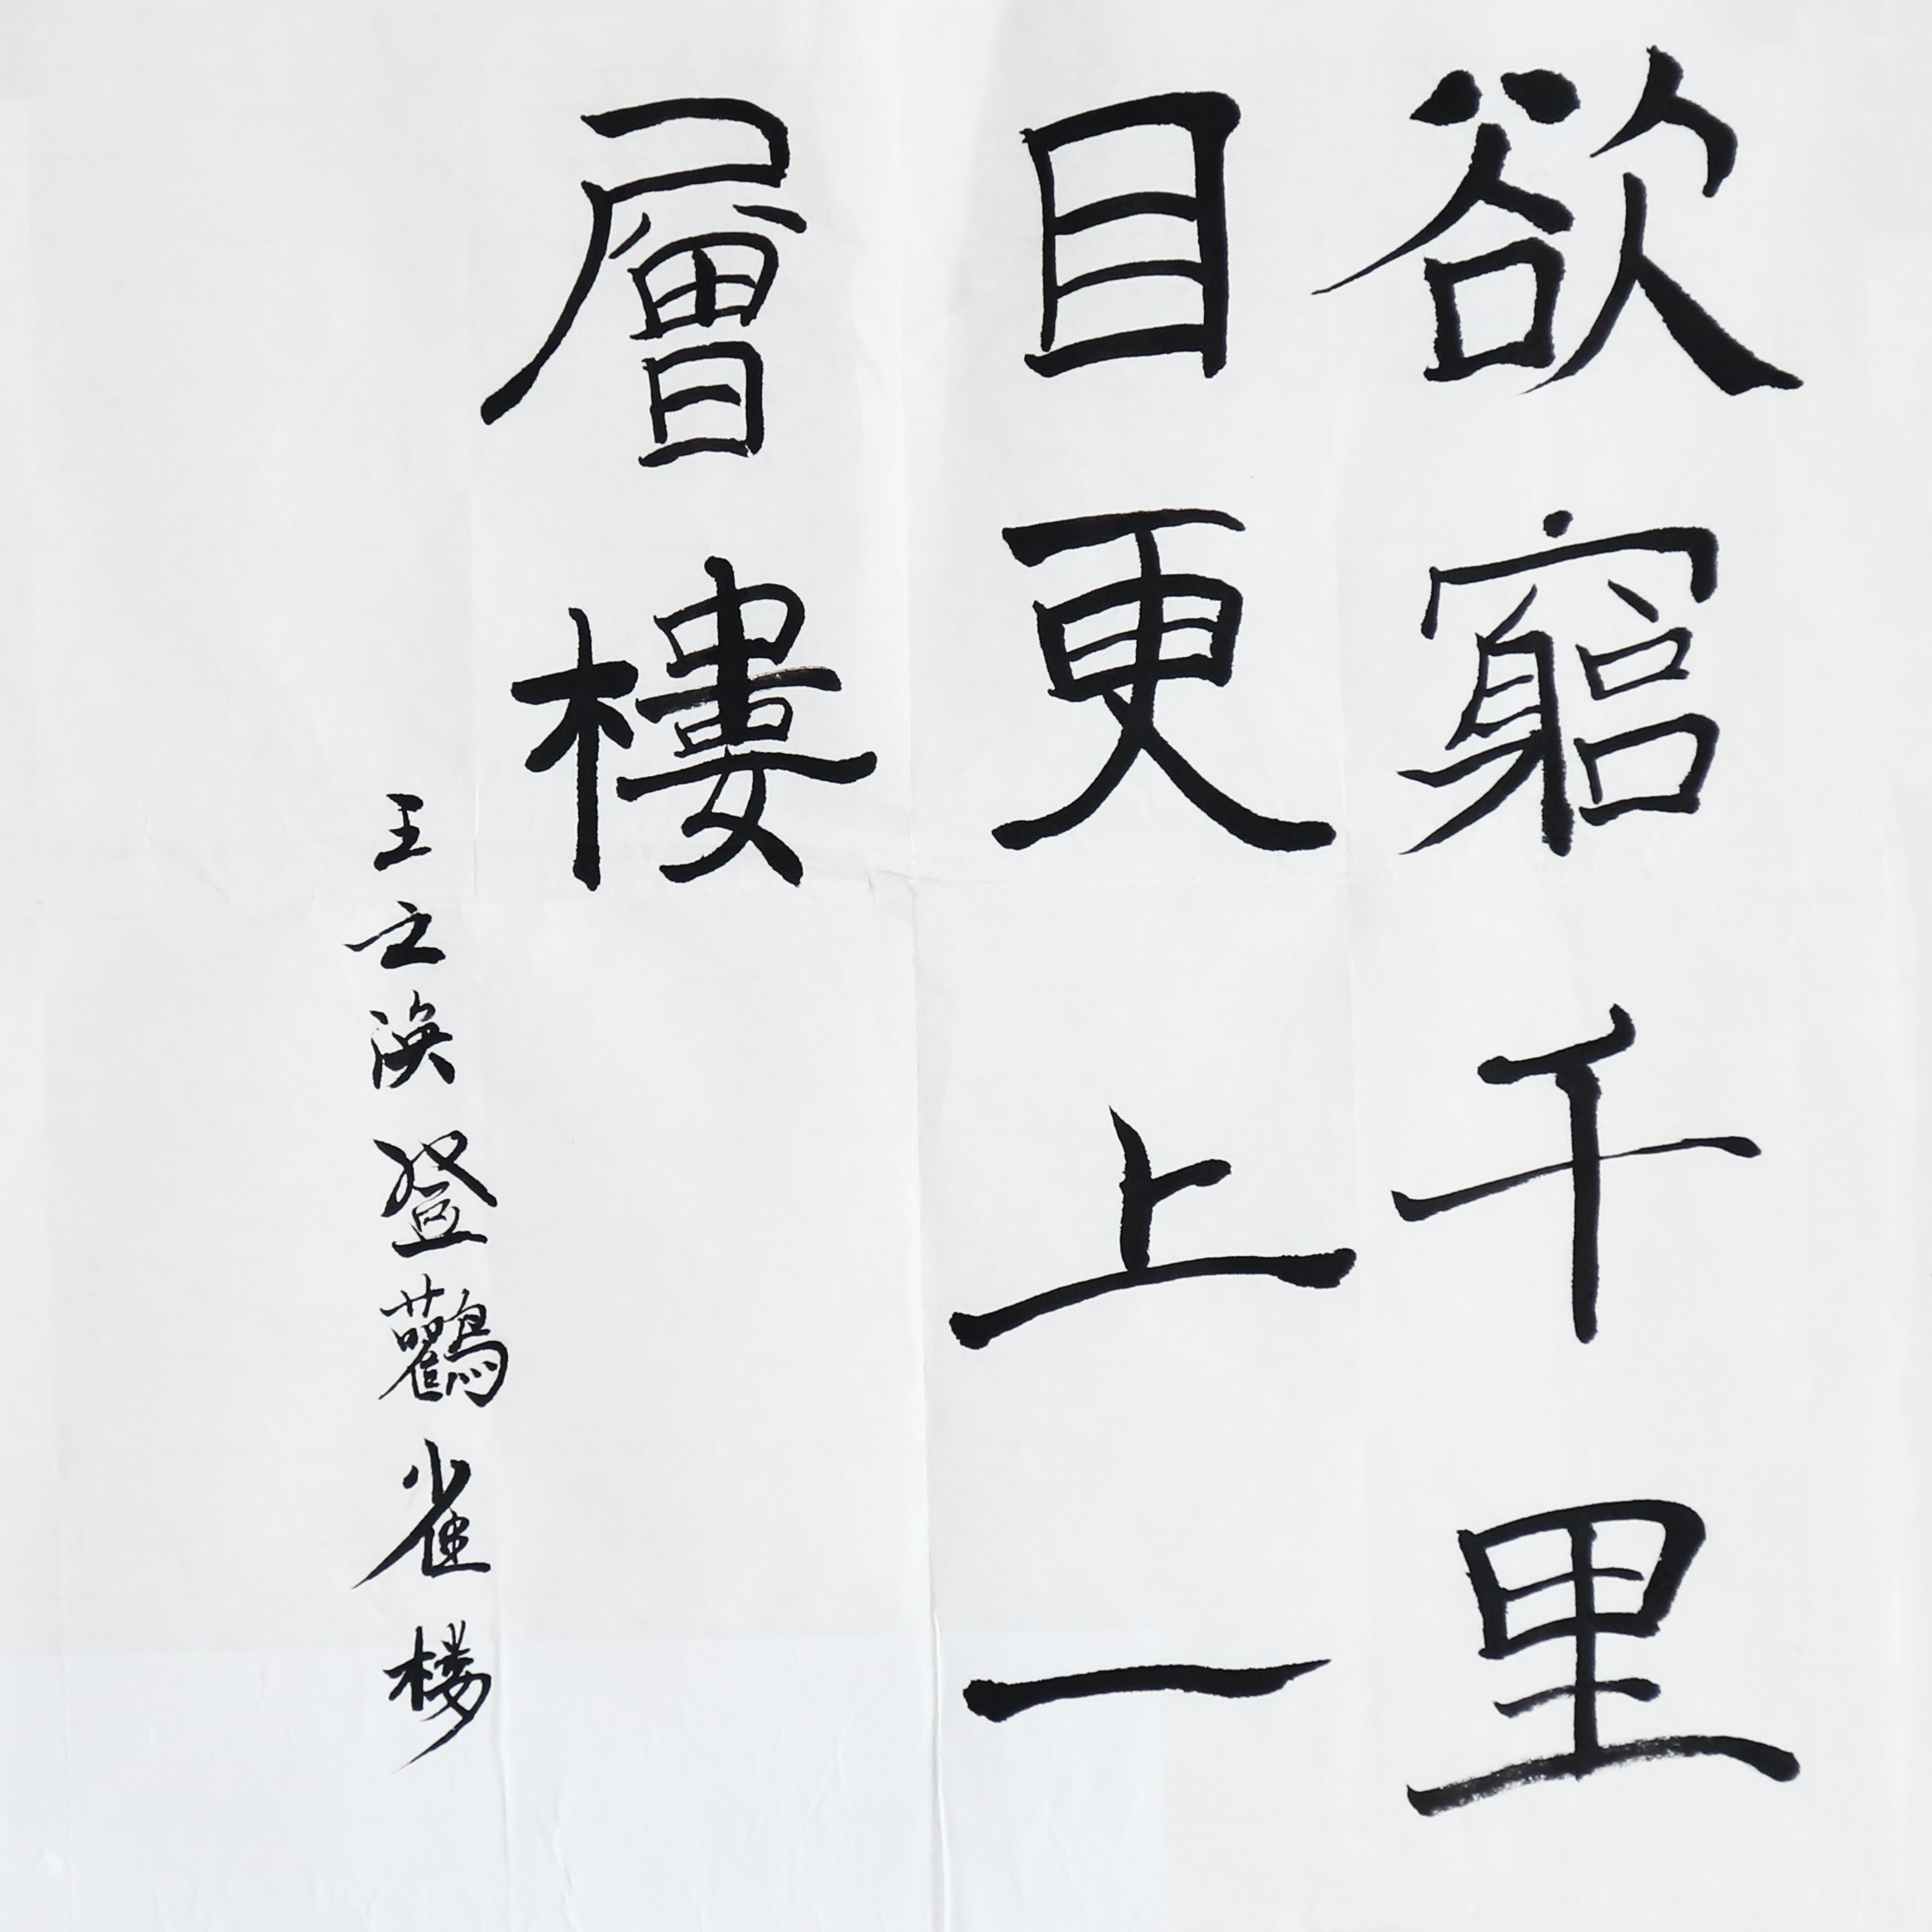 欲窮千里
目更上一
層樓
王之渙登鸛雀楼